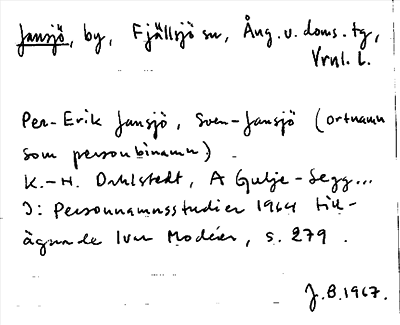 Jansjö, by, Fjällsjö sn, Ång. v. doms. tg,
Vrnl. l.
Per-Erik Jansjö, Sven-Jansjö (ortnamn
som personbinamn).
K.-H. Dahlstedt, A Gulje-Segg...
I: Personnamnsstudier 1964 till-
ägnade Ivar Modéer, s. 279.
J.B. 1967.